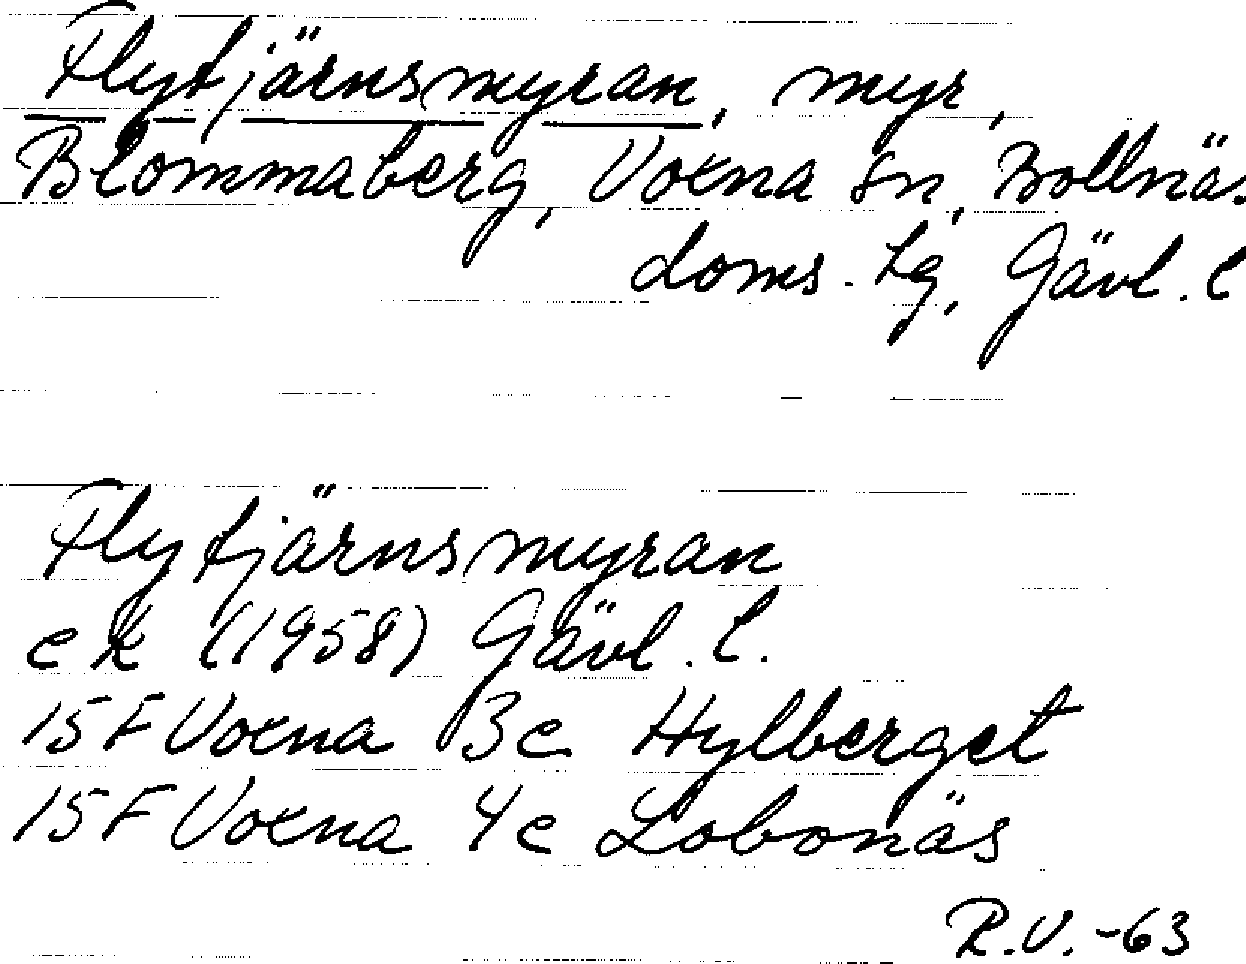 Flytjärnsmyran, myr,
Blommaberg, Voxna sn, Bollnäs
doms. lg, Gävl. l
Flytjärnsmyran
ek (1958) Gävl. l.
15F Voxna 3c Hylberget
15F Voxna 4c Lobonäs
R.V. -63